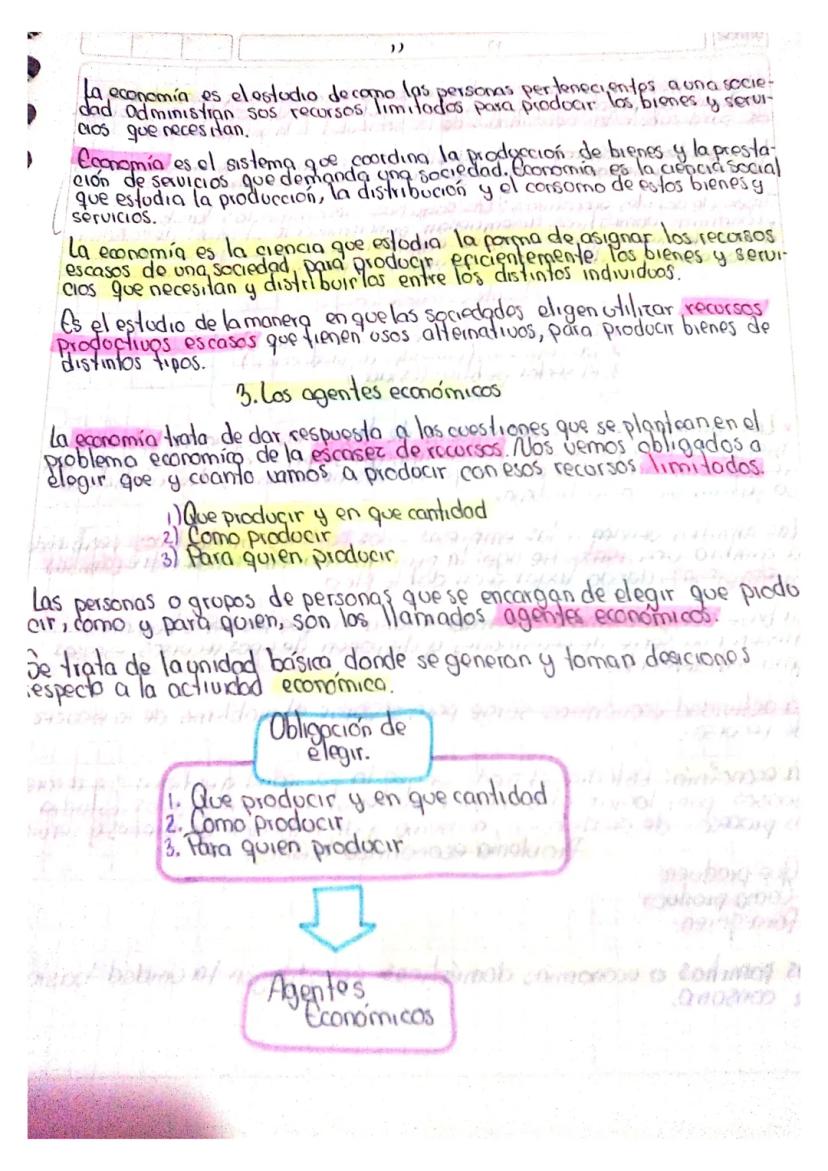 La economía es el estudio de como las personas pertenecientes a una socie-
dad administran sus recursos limitados para producir los bienes y servi-
cios que necesitan.
Economía es el sistema que coordina la producción de bienes y la presta-
ción de servicios que demanda una sociedad. Economía es la ciencia social
que estudia la producción, la distribución y el consumo de estos bienes y
servicios.
La economía es la ciencia que estudia la forma de asignar los recursos
escasos de una sociedad para producir eficientemente los bienes y servi-
cios que necesitan y distribuirlos entre los distintos individuos.
Es el estudio de la manera en que las sociedades eligen utilizar recursos
productivos escasos que tienen usos alternativos, para producir bienes de
distintos tipos.
3. Los agentes económicos
La economía trata de dar respuesta a las cuestiones que se plantean en el
problema economico de la escasez de recursos. Nos vemos obligados a
elegir que y cuanto vamos a producir con esos recursos limitados.
1) Que producir y en que cantidad
2) Como producir
3) Para quien producir
Las personas o grupos de personas que se encargan de elegir que produ
cir, como y para quien, son los llamados agentes económicos.
Se trata de la unidad básica donde se generan y toman desiciones
respecto a la actividad económica.
Obligación de
elegir.
1. Que producir y en que cantidad
2. Como producir
3. Para quien producir
Agentes
Económicos